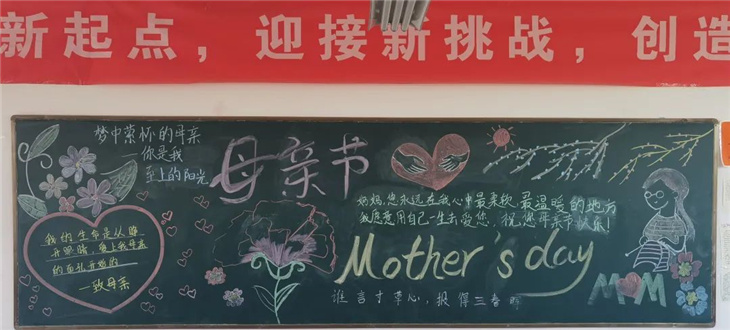 新起点，迎接新挑战，创造
梦中萦怀的母亲
—你是我
至上的阳光
母亲节
妈妈,您永远在我心中最柔软、最温暖的地方
我愿意用自己一生去爱您，祝您母亲节快乐!
我的生命是从睁
开眼睛，爱上我母亲
的面孔开始的
—致母亲
Mother's day
MOM
谁言寸草心，报得三春晖